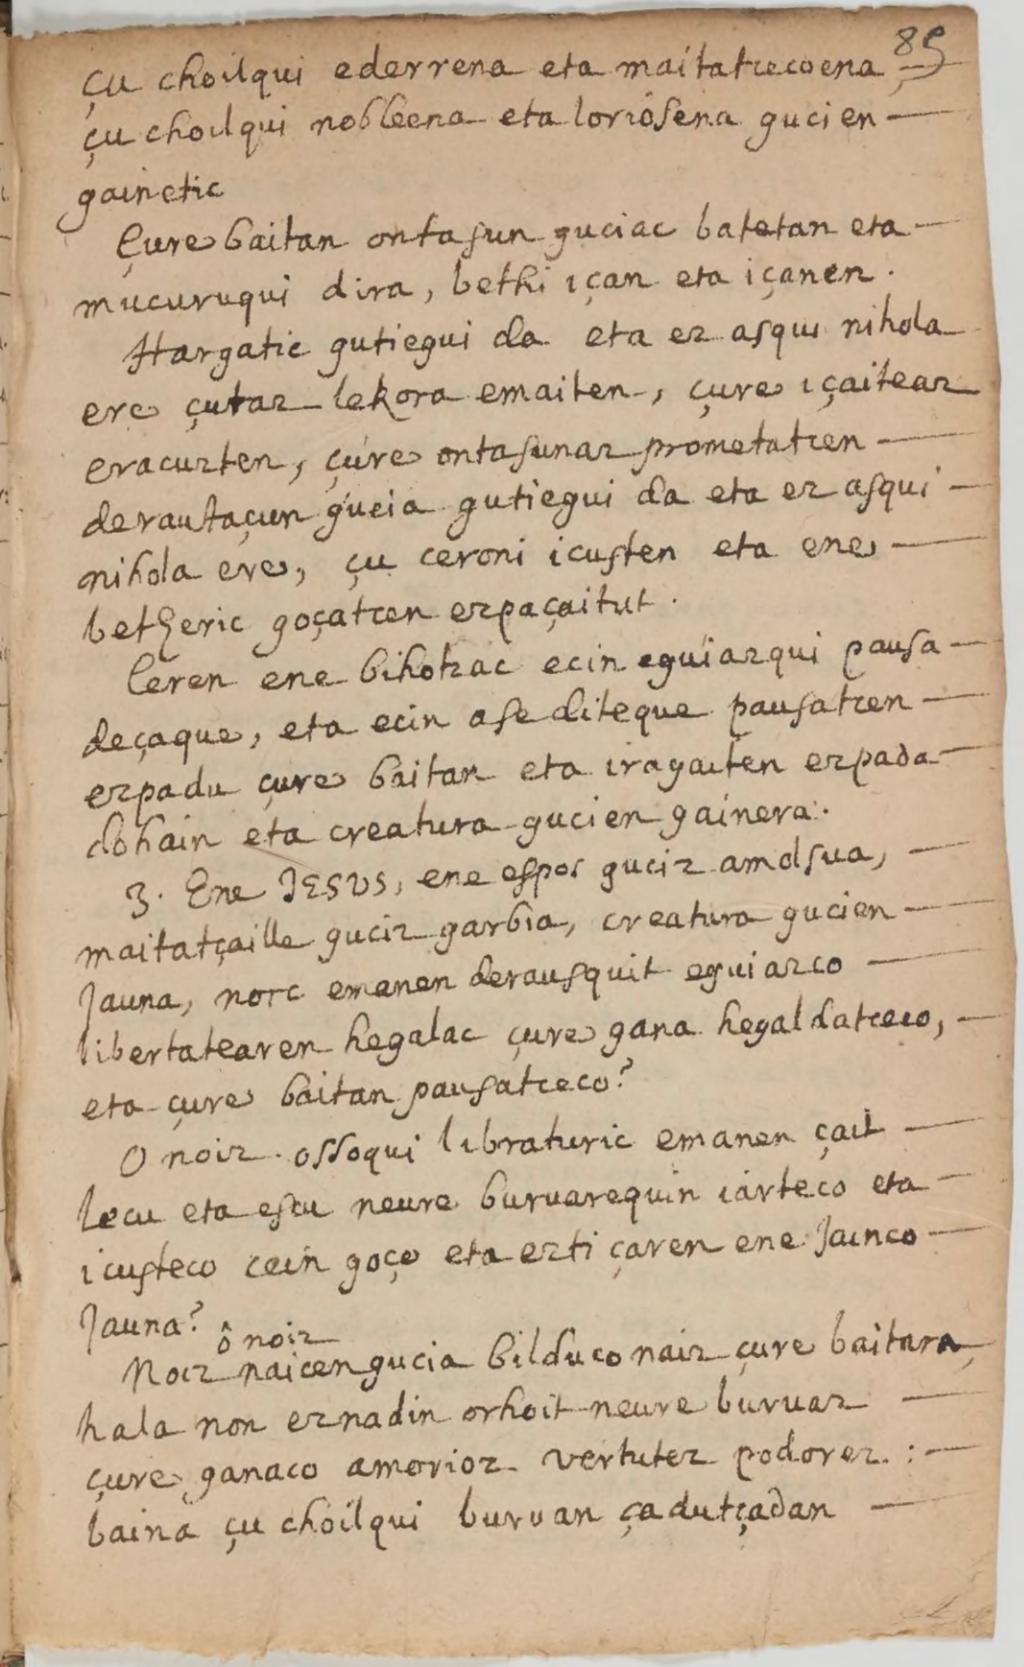 89
çu choilqui ederrena eta maitatcecoena,
çu choilqui nobleena eta loriósena gucien
gainetic
Çure baitan ontasun guciac batetan eta
mucuruqui dira, bethi içan eta içanen.
Hargatic gutiegui da eta ez asqui nihola
ere çutaz lekora emaiten, çure içaiteaz
eracuzten, çure ontasunaz prometatcen
derautaçun gucia gutiegui da eta ez asqui
nihola ere, çu ceroni icusten eta ene
betheric goçatcen ezpaçaitut.
Ceren ene bihotzac ecin eguiazqui pausa
deçaque, eta ecin ase diteque pausatcen
ezpadu çure baitan eta iragaiten ezpada
dohain eta creatura gucien gainera.
3. Ene JESUS, ene espos guciz amolsua,
maitatçaille guciz garbia, creatura gucien
Jauna, norc emanen derausquit eguiazco
libertatearen hegalac çure gana hegaldatceco,
eta çure baitan pausatceco?
O noiz ossoqui libraturic emanen çait
lecu eta escu neure buruarequin iarteco eta
icusteco cein goço eta ezti çaren ene Jainco
Jauna? ô noiz
Noiz naicen gucia bilduco naiz çure baitara,
hala non eznadin orhoit neure buruaz
çure ganaco amorioz vertutez podorez:
baina çu choilqui buruan çadutçadan